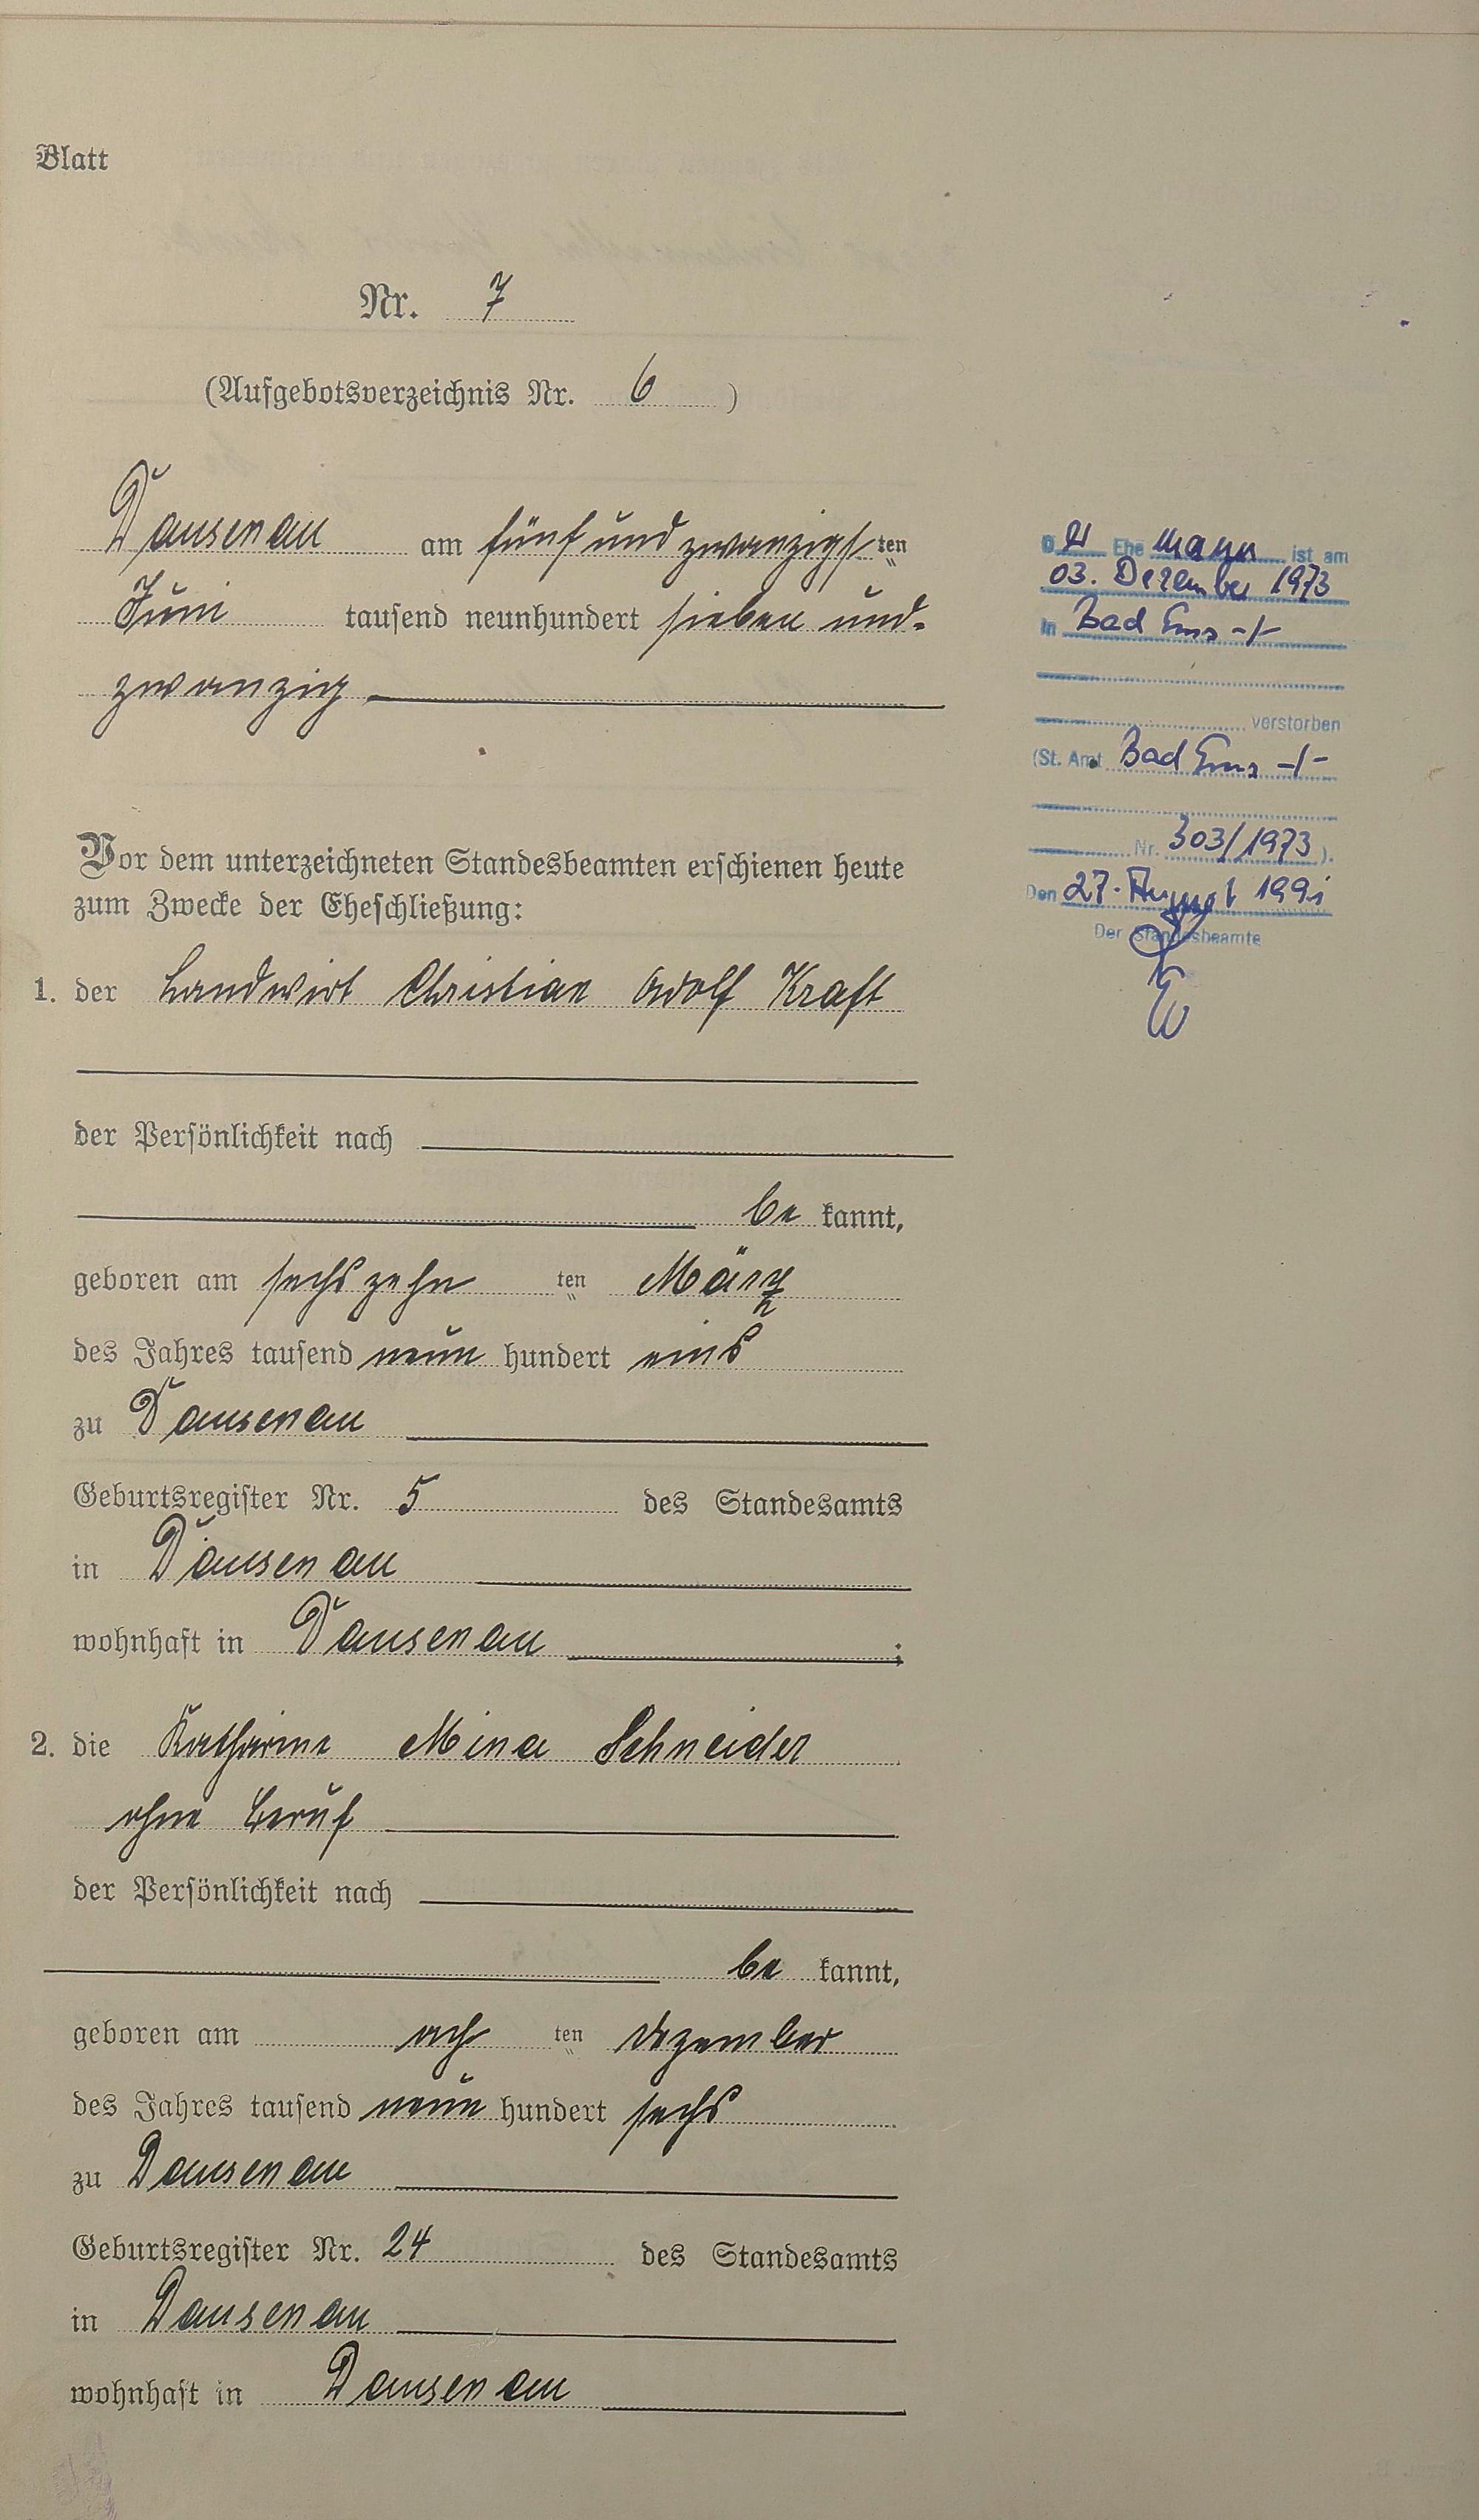 Blatt
Nr. 7
(Aufgebotsverzeichnis Nr. 6 )
Dausenau am fünfundzwanzigsten
Juni tausend neunhundert sieben und-
zwanzig
Vor dem unterzeichneten Standesbeamten erschienen heute
zum Zwecke der Eheschließung:
1. der Landwirt Christian Adolf Kraft
der Persönlichkeit nach
be kannt,
geboren am sechszehn ten März
des Jahres tausend neun hundert eins
zu Dausenau
Geburtsregister Nr. 5 des Standesamts
in Dausenau
wohnhaft in Dausenau ;
2. die Katharine Mina Schneider
ohne Beruf
der Persönlichkeit nach
be kannt,
geboren am ach ten Dezember
des Jahres tausend neun hundert sechs
zu Dausenau
Geburtsregister Nr. 24 des Standesamts
in Dausenau
wohnhaft in Dausenau
Der Ehemann ist am
03. Dezember 1973
in Bad Ems -/-
verstorben
(St. Amt Bad Ems -/-
Nr. 303/1973 ).
Den 27. August 1991
Der Standesbeamte